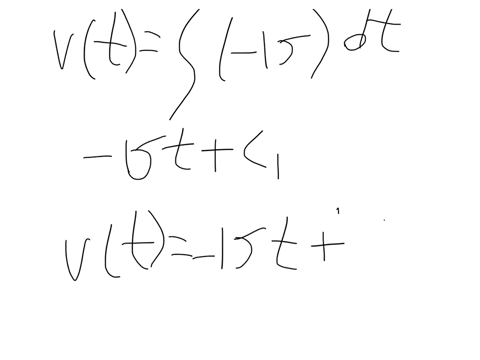 v(t)=∫(-15)dt
-15t+C₁
v(t)=-15t+